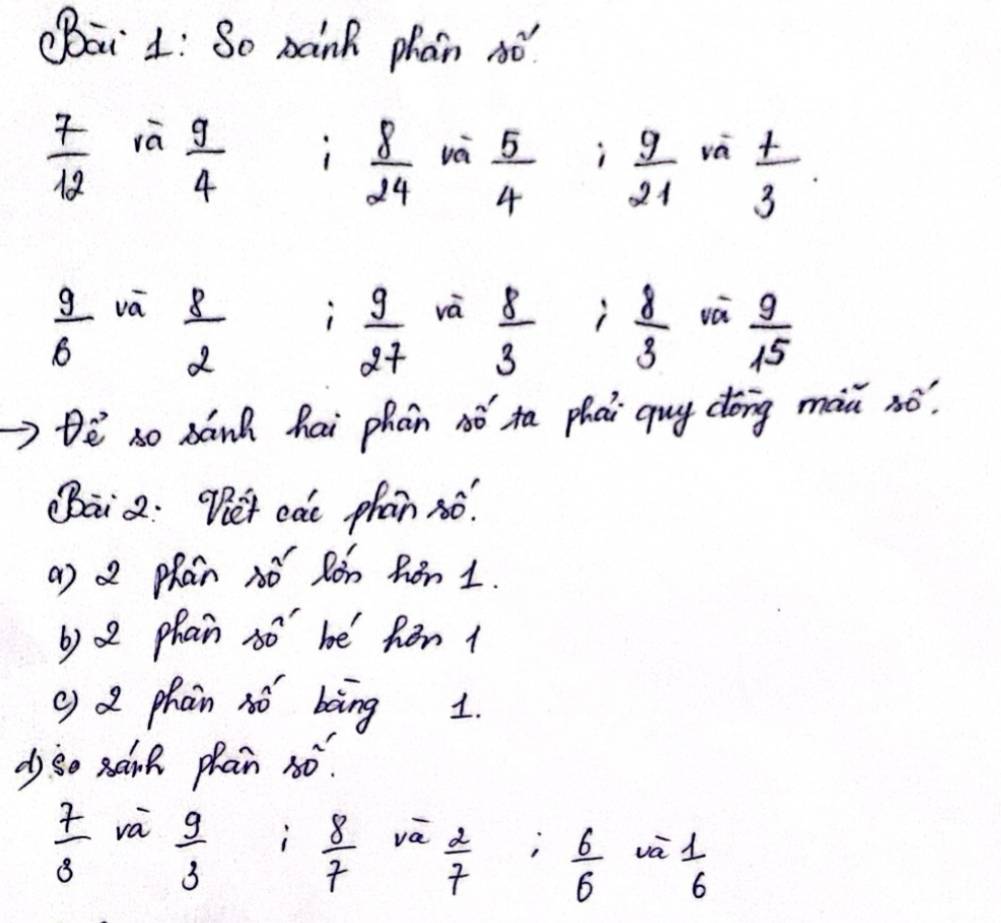 Bài 1: So sánh phân số.
7/12 và 9/4 ; 8/24 và 5/4 ; 9/21 và 7/3.
9/6 và 8/2 ; 9/27 và 8/3 ; 8/3 và 9/15
→ Để so sánh hai phân số ta phải quy đồng mẫu số.
Bài 2: Viết các phân số.
a) 2 phân số lớn hơn 1.
b) 2 phân số bé hơn 1
c) 2 phân số bằng 1.
d) So sánh phân số.
7/3 và 9/3 ; 8/7 và 2/7 ; 6/6 và 1/6